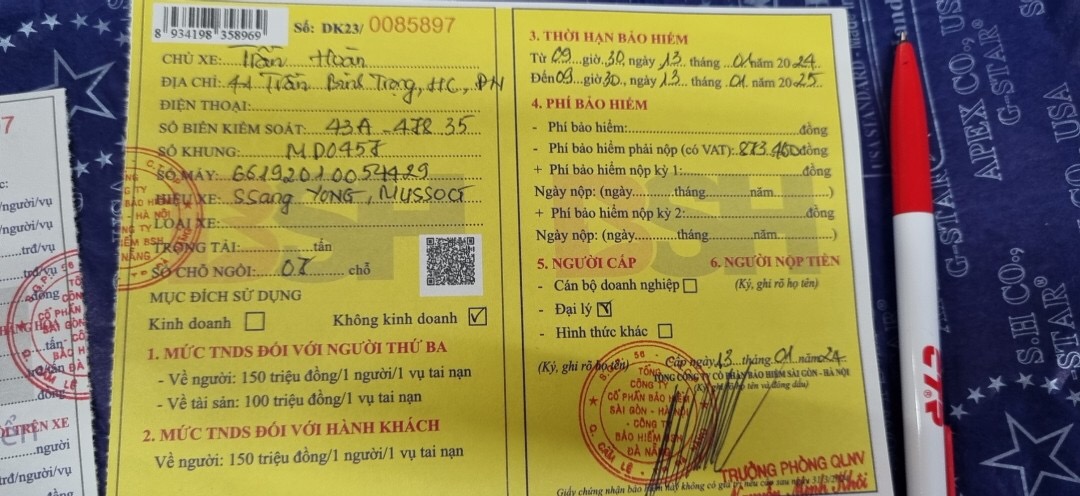 8 934198 358969
Số: DK23/ 0085897
CHỦ XE: Trần Hoàn
ĐỊA CHỈ: 41 Trần Bình Trọng, HC, ĐN
ĐIỆN THOẠI:
SỐ BIỂN KIỂM SOÁT: 43A - 478 35
SỐ KHUNG: MD045J
SỐ MÁY: 66192010054429
HIỆU XE: SSang YONG, MUSSOCI
LOẠI XE:
TRỌNG TẢI: tấn
SỐ CHỖ NGỒI: 07 chỗ
MỤC ĐÍCH SỬ DỤNG
Kinh doanh ☐ Không kinh doanh ☑
1. MỨC TNDS ĐỐI VỚI NGƯỜI THỨ BA
- Về người: 150 triệu đồng/1 người/1 vụ tai nạn
- Về tài sản: 100 triệu đồng/1 vụ tai nạn
2. MỨC TNDS ĐỐI VỚI HÀNH KHÁCH
Về người: 150 triệu đồng/1 người/1 vụ tai nạn
BSH
3. THỜI HẠN BẢO HIỂM
Từ 09 giờ 30, ngày 13 tháng 01 năm 2024
Đến 09 giờ 30, ngày 13 tháng 01 năm 2025
4. PHÍ BẢO HIỂM
- Phí bảo hiểm: đồng
- Phí bảo hiểm phải nộp (có VAT): 873.400 đồng
+ Phí bảo hiểm nộp kỳ 1: đồng
Ngày nộp: (ngày tháng năm )
+ Phí bảo hiểm nộp kỳ 2: đồng
Ngày nộp: (ngày tháng năm )
BSH
5. NGƯỜI CẤP 6. NGƯỜI NỘP TIỀN
- Cán bộ doanh nghiệp ☐ (Ký, ghi rõ họ tên)
- Đại lý ☑
- Hình thức khác ☐
(Ký, ghi rõ họ tên) Cấp ngày 13 tháng 01 năm 24
TỔNG CÔNG TY CỔ PHẦN BẢO HIỂM SÀI GÒN - HÀ NỘI
(Ký, ghi rõ họ tên và đóng dấu)
TỔNG
CÔNG TY
CỔ PHẦN BẢO HIỂM
SÀI GÒN - HÀ NỘI
CÔNG TY
BẢO HIỂM BSH
ĐÀ NẴNG
Q. CẨM LỆ
TRƯỞNG PHÒNG QLNV
Giấy chứng nhận bảo hiểm này không có giá trị nếu cấp sau ngày 31/3/
/người/vụ
/người/vụ
trđ/vụ
trđ/vụ
đồng
tấn
đồng
TRÊN XE
người
trđ/người/vụ
đồng
CTR
APEX CO., USA
G-STAR
S.H CO.,
G-STAR